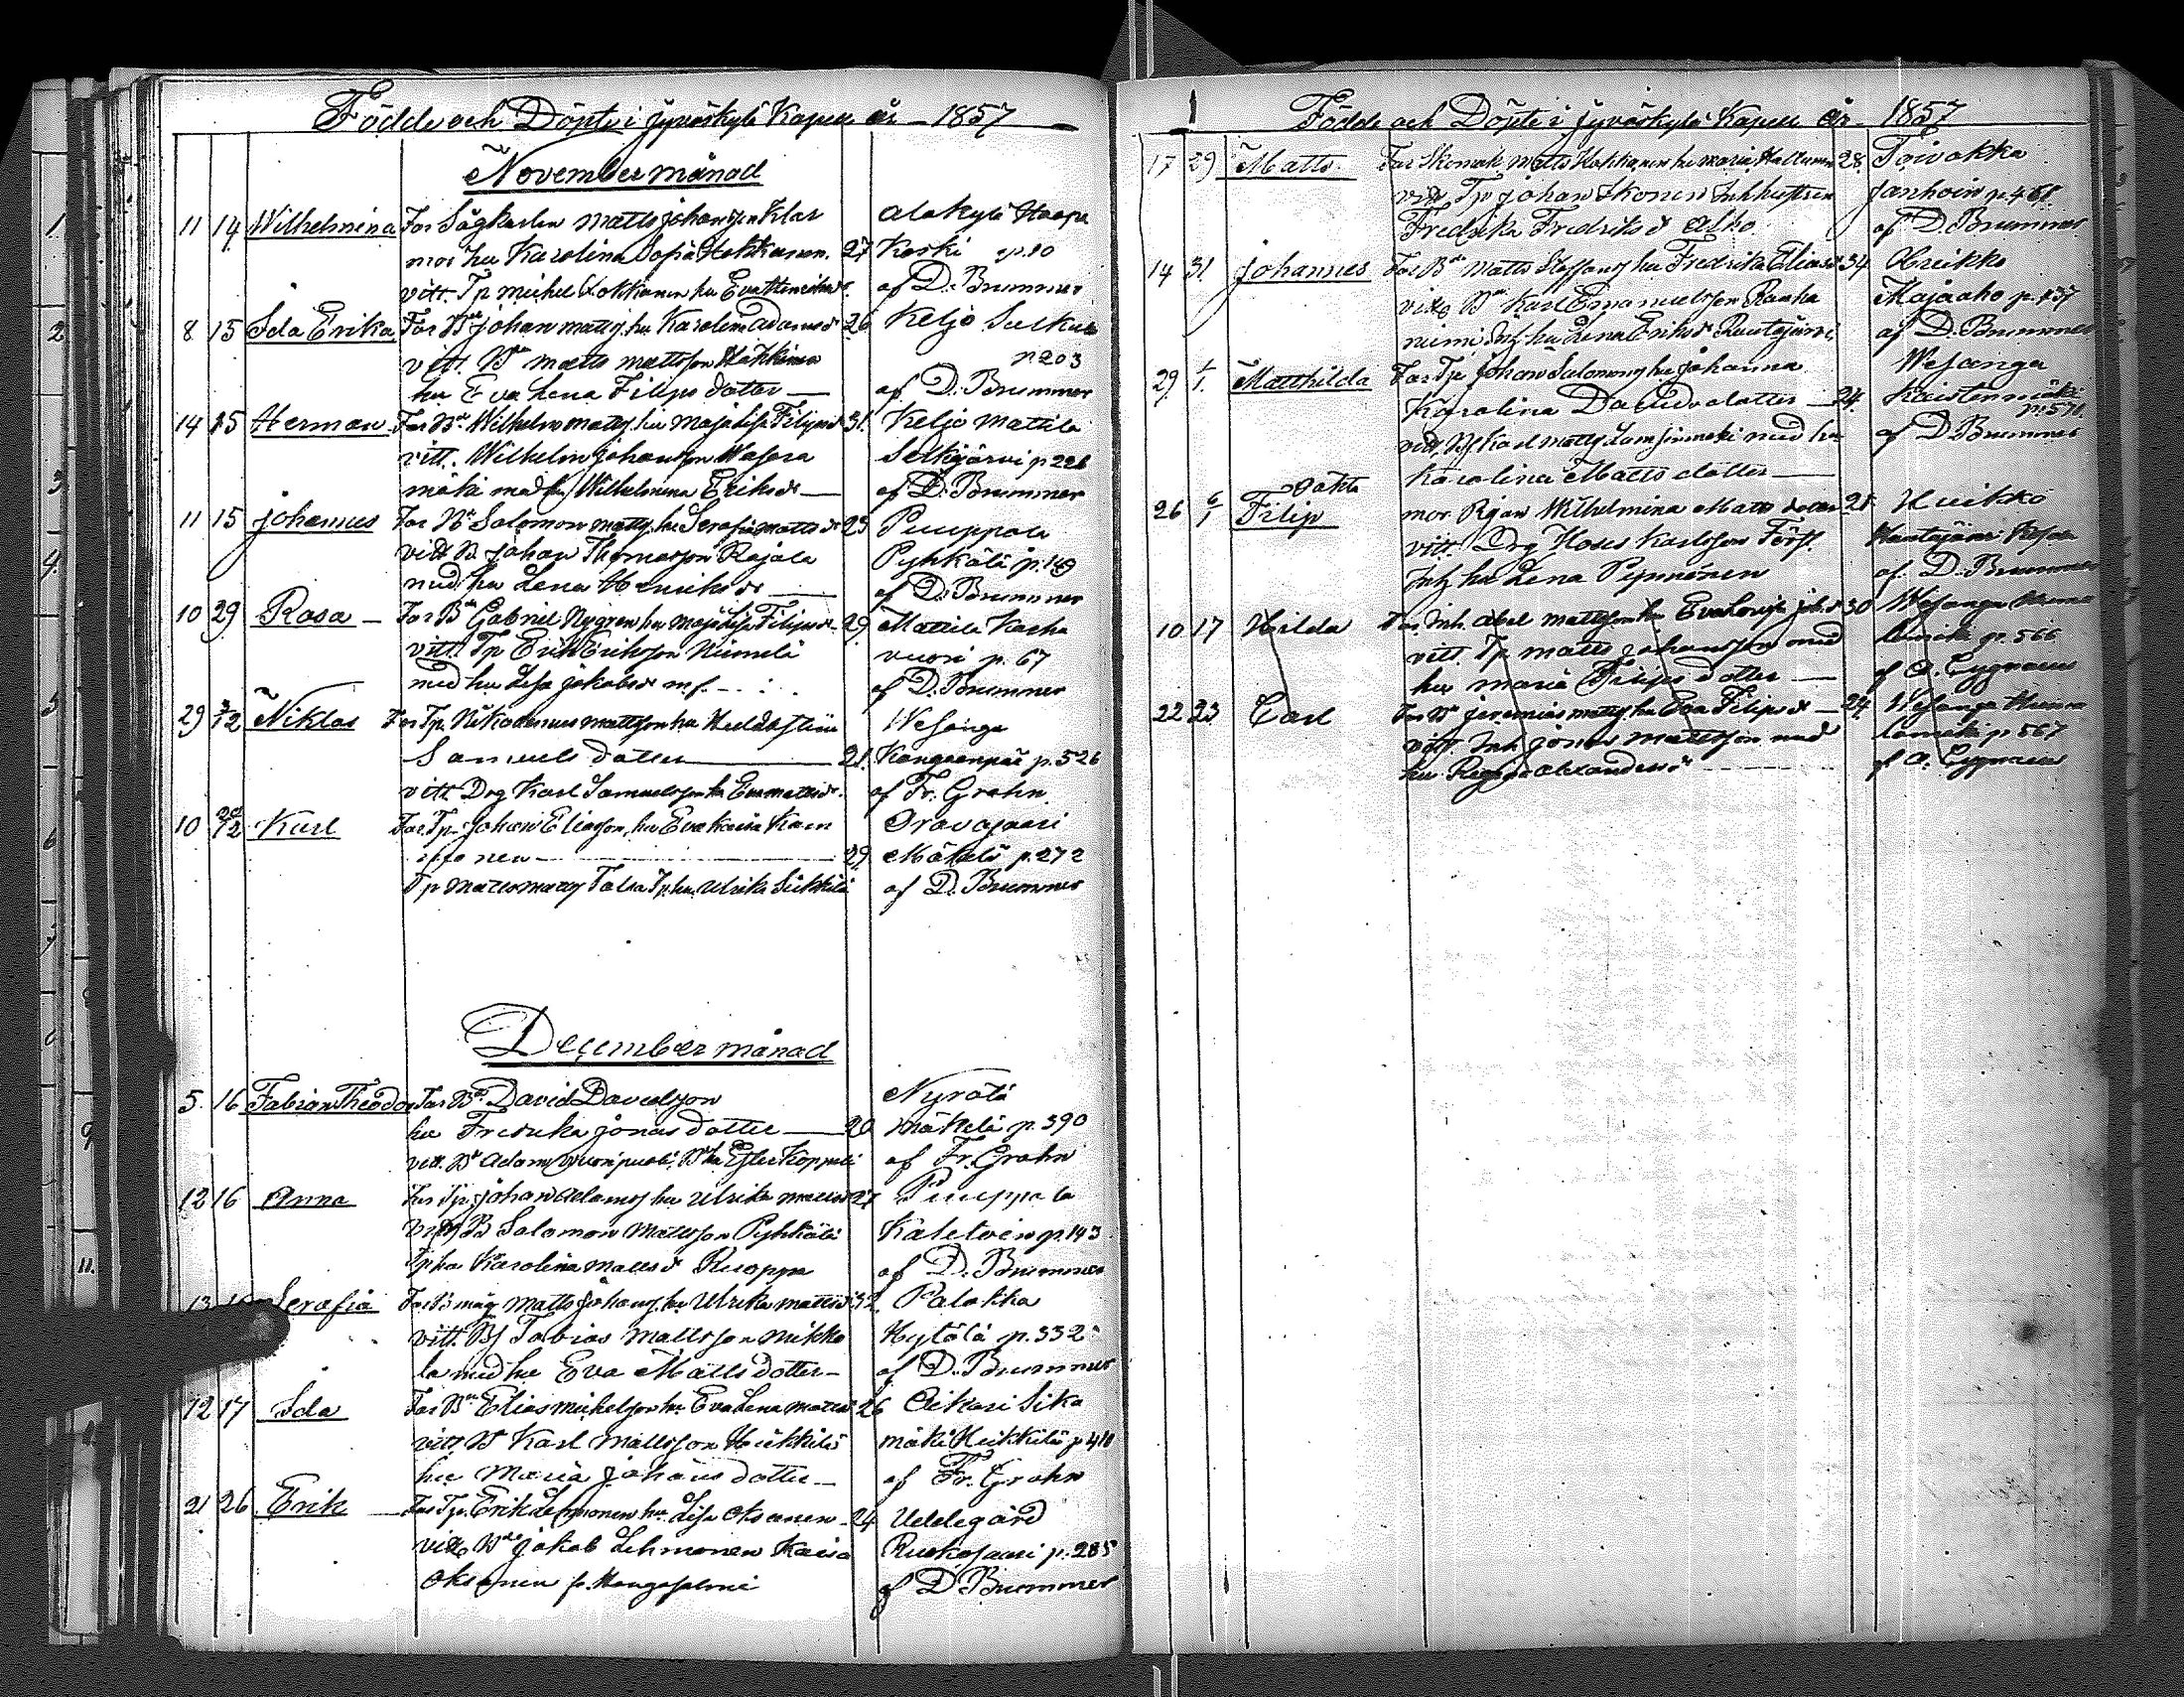 Födde och Döpte i Jyväskylä Kapell år 1857
November månad
11 14 Wilhelmina Far Sågkarlen Matts Johansson Klar
mor hu Karolina Sofia Hokkanen. 27
vitt. Tp Michel Hokkanen hu Eva
Alakylä Haapa
Koski p.10
af D. Brummer
8 15 Ida Erika Far Bde Johan Mattss hu Karolina Adamsdr 26
vitt. Bde Matts Mattsson Häkkinen
hu Eva Lena Filips dotter —
Keljo Sulkula
p 203
af D. Brummer
14 15 Herman Far Bde Wilhelm Mattss hu Maja Lisa Filipsdr 31.
vitt. Wilhelm Johansson Wasara
mäki med hu Wilhelmina Eriksdr —
Keljo Mattila
Selkijärvi p 226
af D. Brummer
11 15 Johannes Far Bde Salomon Mattss. hu Serafia Mattsdr 25
vitt B Johan Thomasson Rajala
med hu Lena Henriksdr —
Puuppola
Pyhkälä p.149
af D. Brummer
10 29 Rosa — Far Bde Gabriel Nygren hu Maja Lisa Filipsdr 29.
vitt. Tp Erik Eriksson Niemelä
med hu Lisa Jakobsdr m.f.
Mattila Kaska
vuori p. 67
af D. Brummer
29 3/12 Niklas Far Tp. Nikodemus Mattsson hu Hedda Stiin
Samuels dotter — 21.
vitt. Drg Karl Samuelsson hu Eva Mattsdr.
Wesanga
Kangasenpää p. 526
af Fr. Grahn.
10 20/12 Karl Far Tp. Johan Eliasson, hu Eva Kaisa Kam
ponen — 29.
Tp Matts Mattss Talsa Tp. hu Ulrika Sikkilä
Oravasaari
Mäkelä p. 272
af D. Brummer
December månad
5. 16 Fabian Theodor Far Bde David Davidsson
hu Fredrika Jonas dotter — 20
vitt. Bde Adam Vuoripuoli, Bde hu Ester Koppeli
Nyrölä
Mäkelä p. 390
af Fr. Grahn
12 16 Anna Far Tp. Johan Adamss hu Ulrika Mattsdr 27
vitt B Salomon Mattsson Pyhkälä
Tp hu Karolina Mattsdr Ruoppa
Puuppola
Kaletoin p. 143
af D. Brummer
13 Serafia Far B måg Matts Johanss. hu Ulrika Mattsdr 32
vitt. Bs Tobias Mattsson Mikko
la med hu Eva Matts dotter —
Palokka
Hytölä p. 332
af D. Brummer
12 17 Ida Far Bde Elias Michelsson hu Eva Lena Mattsdr 26
vitt. B Karl Mattsson Heikkilä
hu Maria Johans dotter —
Oikari Sika
mäki Heikkilä p 410
af Fr. Grahn
21 26 Erik — Far Tp. Erik Lehmonen hu Lisa Oksanen — 24
vitt Bde Jakob Lehmonen Kaisa
Oksanen fr. Hangasalmi
Uddegård
Ruokosaari p. 285
af D Brummer
Födde och Döpte i Jyväskylä Kapell år 1857
17 29 Matts. Far Skomak Matts Hokkanen hu Maria Hallman 28.
vitt Tp Johan Ikonen
Fredrika Fredriksd Alho
Toivakka
Janhoin p. 461.
af D. Brummer
14 31 Johannes Far Bde Matts Staffanss hu Fredrika Eliasdr 34
vitt. Bde Karl Emanuelsson Raaka
niemi Inh hu Lena Eriksdr Rautajärvi
Huikko
Majaaho p. 437
af D. Brummer
29 1/1. Matthilda Far Tp Johan Salomonss hu Johanna
Karolina Davids dotter — 24.
vitt. Bs Karl Mattss Lamsinmäki med hu
Karolina Matts dotter —
Wesanga
Kaistenmäki
p. 571
af D Brummer
26 6/1 oäkta
Filip mor. Pigan Wilhelmina Matts dotter 21
vitt. Drg Moses Karlsson Förss.
Inh hu Lena Pynnönen
Huikko
Hautajärvi
af D. Brummer
10 17 Hilda Far. Inh. Abel Mattsson hu Eva Lovisa Joh.d 30
vitt. Tp Matts Johansson med
hu Maria Filips dotter —
Wesanga
p. 566
af A. Cygnaeus
22 23 Carl Far Bde Jeremias Mattss hu Eva Filipsdr — 24.
vitt. Inh Jonas Mattsson med
hu Regina Alexandersdr
Wesanga
p 567
af A. Cygnaeus